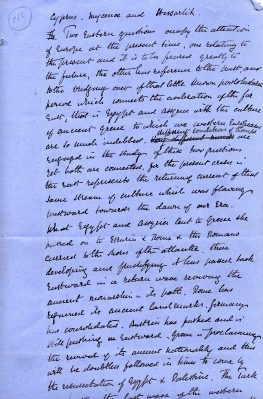 Cyprus. Mycenae and Hissarlik.
Two Eastern questions occupy the attention
of Europe at the present time, one relating to
the present and it is to be feared greatly to
the future, the other has reference to the past and
to the bridging over of that little known
period which connects the civilization of the far
East, that is Egypt and Assyria with the culture
of ancient Greece to which we western Europeans
are so much indebted. different conditions of thought
engaged in the study of these two questions
yet both are connected, for the present crisis in
the east represents the returning current of that
same stream of culture which was flowing
westward towards the dawn of our Era.
What Egypt and Assyria lent to Greece she
passed on to Etruria & Rome & the Romans
carried to the shores of the Atlantic. There
developing and fructifying it has passed back
Eastward in a return wave reviving the
ancient monarchies in its path. Rome has
regained its ancient landmarks, Germany
has consolidated. Austria has pushed and is
still pushing on Eastward. Greece is proclaiming
the revival of its ancient nationality and this
will be doubtless followed in time to come by
the resuscitation of Egypt & Palestine. The Turk
the last wave of the western